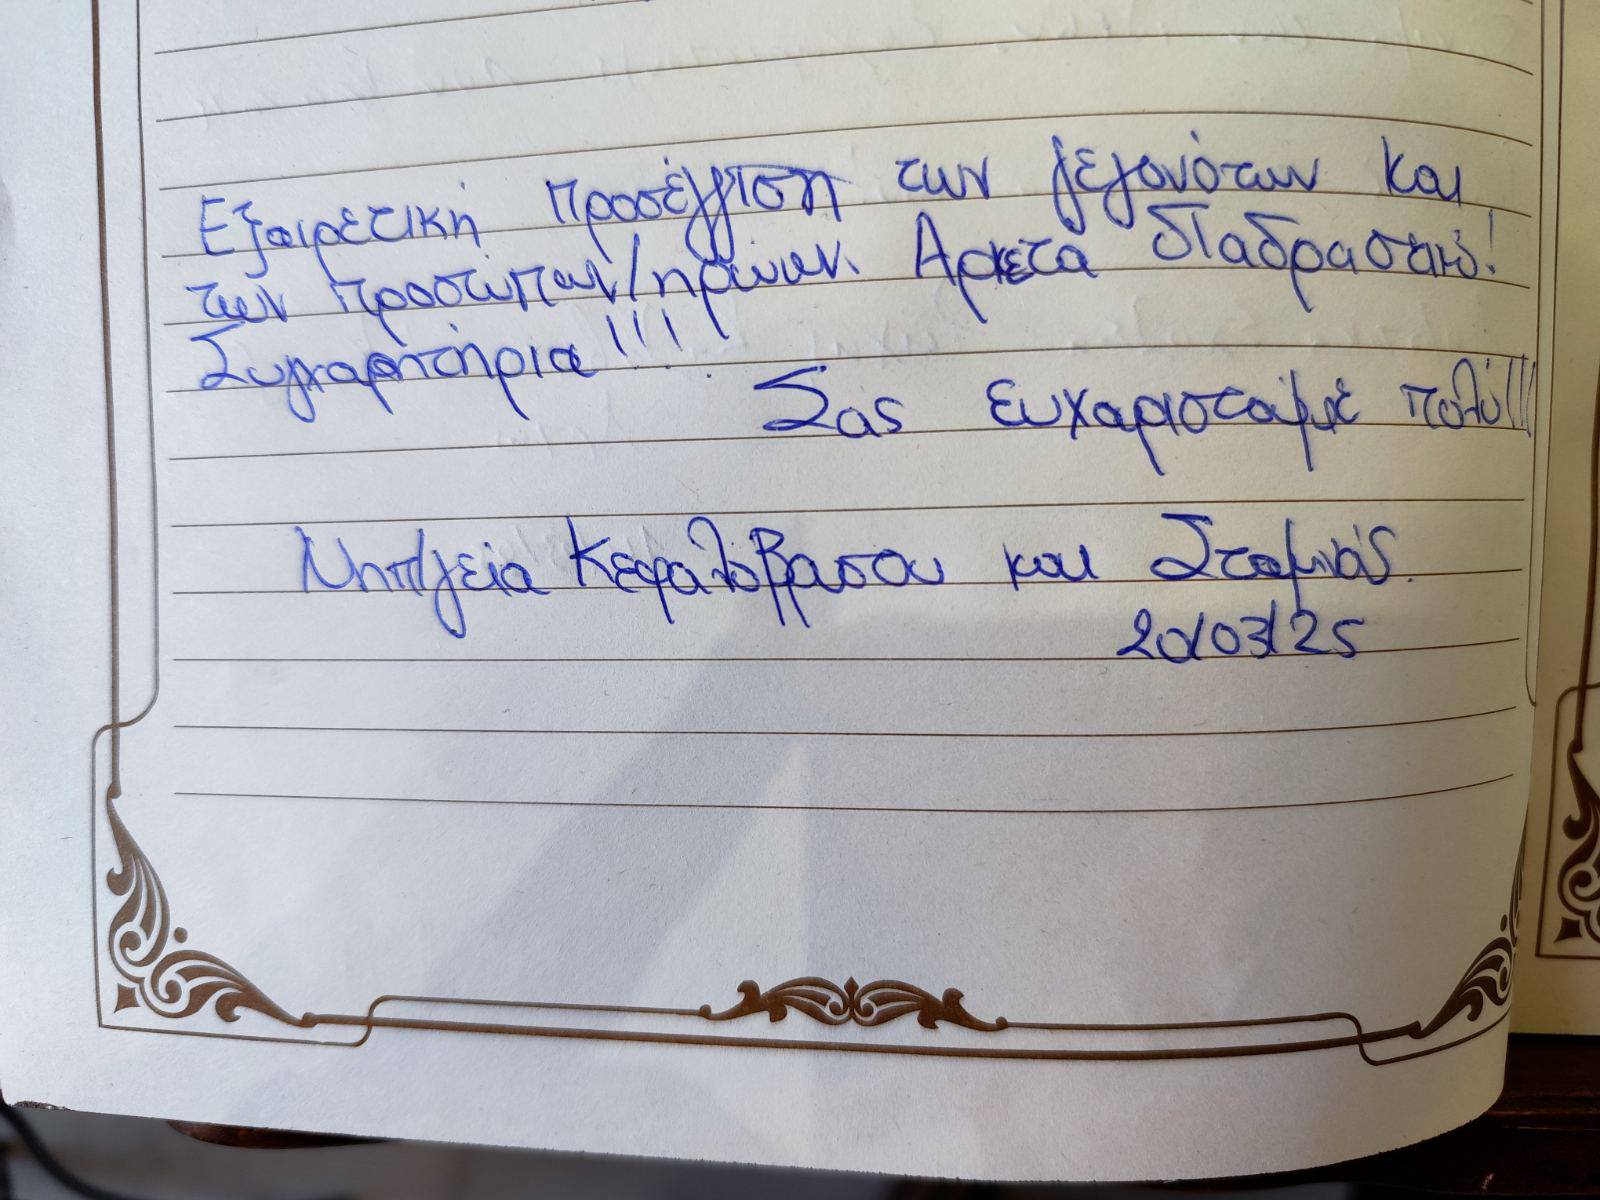 Εξαιρετική προσέγγιση των γεγονότων και
των προσώπων/ηρώων. Αρκετα διαδραστικό!
Συγχαρητήρια!!!
Σας ευχαριστούμε πολύ!!!
Νηπ/γεία Κεφαλόβρυσου και Σταμνάς.
20/03/25